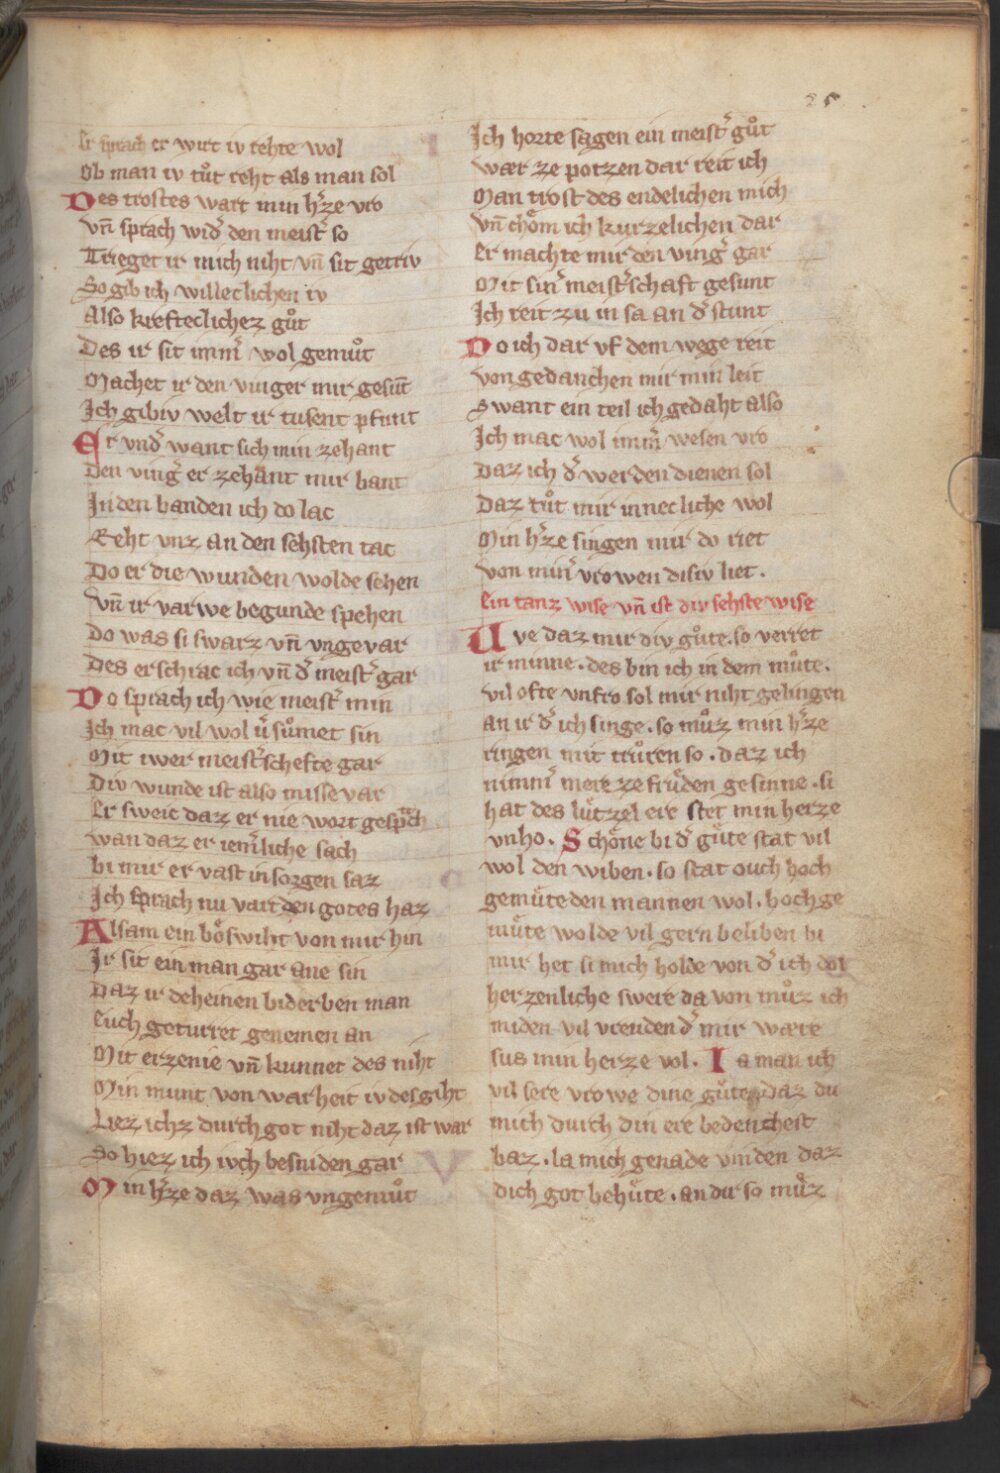 25
Er sprach er wirt iv rehte wol
Ob man iv tuͦt reht als man sol
Des trostes wart min hˀze vro
Vn̄ sprach widˀ den meistˀ so
Trieget ir mich niht vn̄ sit getriv
So gib ich willeclichen iv
Also krefteclichez guͦt
Des ir sit immˀ wol gemuͦt
Machet ir den vinger mir gesūt
Ich gibiv welt ir tusent pfunt
Er vndˀ want sich min zehant
Den vingˀ er zehant mir bant
In den banden ich do lac
Reht vnz an den sehsten tac
Do er die wunden wolde sehen
Vn̄ ir varwe begunde spehen
Do was si swarz vn̄ vngevar
Des erschrac ich vn̄ dˀ meistˀ gar
Do sprach ich wie meistˀ min
Ich mac vil wol vˀsuͦmet sin
Mit iwer meistˀschefte gar
Div wunde ist also missevar
Er sweic daz er nie wort gesprach
wan daz er iemˀliche sach
bi mir er vast in sorgen saz
Ich sprach nu vart den gotes haz
Alsam ein boͤswiht von mir hin
Ir sit ein man gar ane sin
Daz ir deheinen biderben man
Euch geturret genemen an
Mit erzenie vn̄ kunnet des niht
Min munt von warheit iv des giht
Liez ichz durch got niht daz ist war
So hiez ich ivch besniden gar
Min hˀze daz was vngemuͦt
Ich horte sagen ein meistˀ guͦt
wær ze potzen dar reit ich
Man trost des endelichen mich
Vn̄ choͤm ich kurzelichen dar
Er machte mir den vingˀ gar
Mit sinˀ meistˀschaft gesunt
Ich reit zu im sa an dˀ stunt
Do ich dar vf dem wege reit
von gedanchen mir min leit
Swant ein teil ich gedaht also
Ich mac wol immˀ wesen vro
Daz ich dˀ werden dienen sol
Daz tuͦt mir innecliche wol
Min hˀze singen mir do riet
von minˀ vrowen disiv liet.
Ein tanz wise vn̄ ist div sehste wise
Uve daz mir div guͤte. so verret
ir minne. des bin ich in dem muͤte.
vil ofte vnfro sol mir niht gelingen
an ir dˀ ich singe. so muͦz min hˀze
ringen mit truͦren so. daz ich
nimmˀ mere ze fruͤden gesinne. si
hat des luͤtzel ere stet min herze
vnho. Schoͤne bi dˀ guͤte stat vil
wol den wiben. so stat ouch hoch
gemuͤte den mannen wol. hochge
muͤte wolde vil gern beliben bi
mir het si mich holde von dˀ ich dol
herzenliche swere da von muͦz ich
miden vil vreuden dˀ mir wære
sus min herze vol. Ia man ich
vil sere vrowe dine guͤte daz du
mich durch din ere bedencheist
baz. la mich genade vinden daz
dich got behuͤte. an dir so muͦz